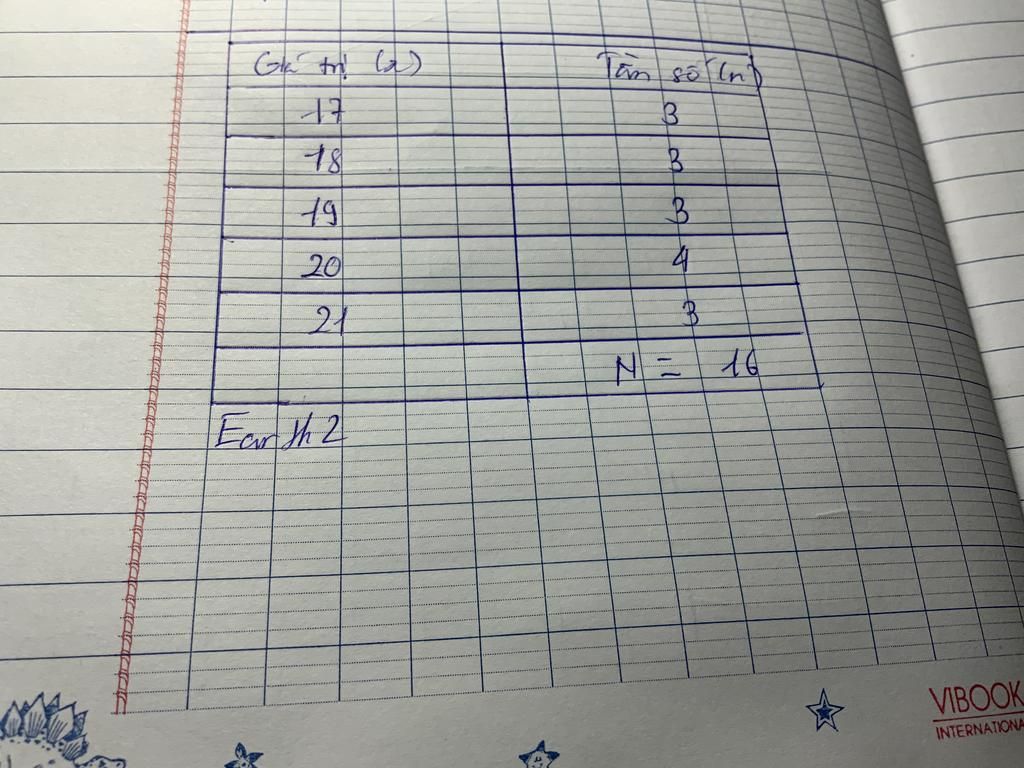 Giá trị (x) Tần số (n)
17 3
18 3
19 3
20 4
21 3
N = 16
Earth 2
VIBOOK
INTERNATIONA